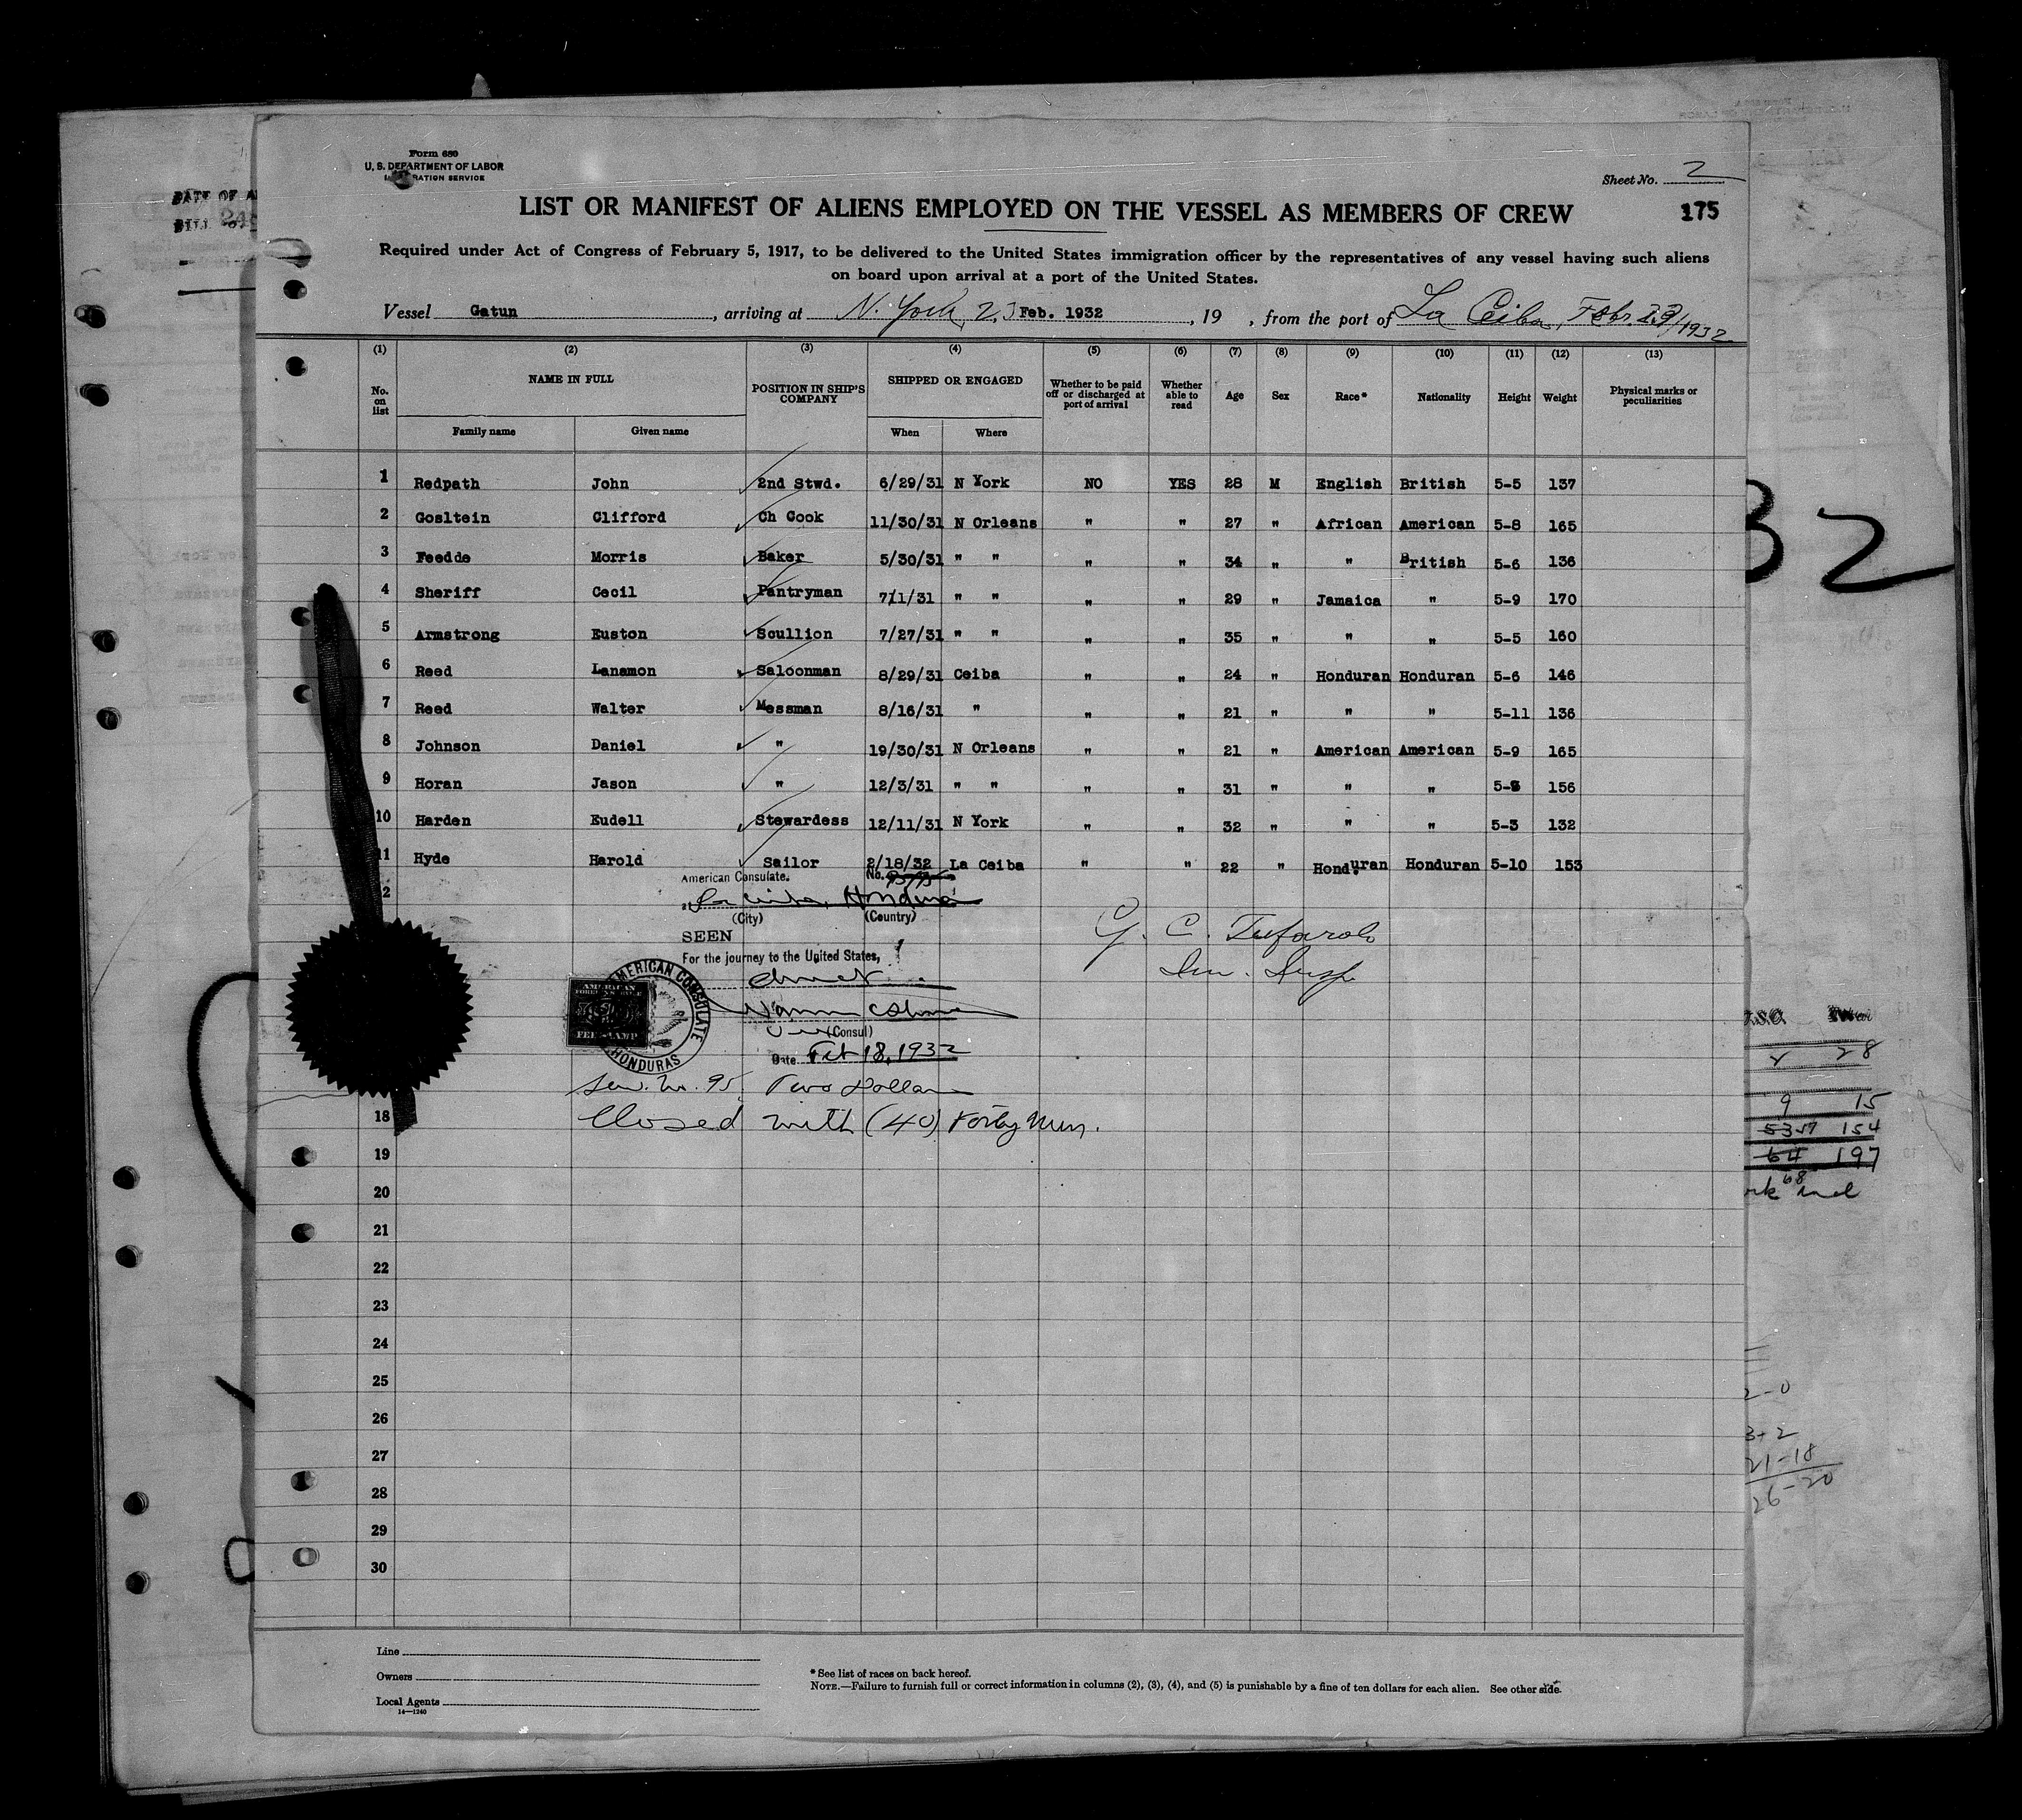 Form 680
U. S. DEPARTMENT OF LABOR
IMMIGRATION SERVICE
Sheet No. 2
LIST OR MANIFEST OF ALIENS EMPLOYED ON THE VESSEL AS MEMBERS OF CREW 175
Required under Act of Congress of February 5, 1917, to be delivered to the United States immigration officer by the representatives of any vessel having such aliens
on board upon arrival at a port of the United States.
Vessel Gatun, arriving at N. York, 23 Feb. 1932, 19 , from the port of La Ceiba, Febr. 1932
(1) (2) (3) (4) (5) (6) (7) (8) (9) (10) (11) (12) (13)
No. on list NAME IN FULL Family name Given name POSITION IN SHIP'S COMPANY SHIPPED OR ENGAGED When Where Whether to be paid off or discharged at port of arrival Whether able to read Age Sex Race* Nationality Height Weight Physical marks or peculiarities
1 Redpath John 2nd Stwd. 6/29/31 N York NO YES 28 M English British 5-5 137
2 Gosltein Clifford Ch Cook 11/30/31 N Orleans " " 27 " African American 5-8 165
3 Feedde Morris Baker 5/30/31 " " " " 34 " " British 5-6 136
4 Sheriff Cecil Pantryman 7/1/31 " " " " 29 " Jamaica " 5-9 170
5 Armstrong Euston Scullion 7/27/31 " " " " 35 " " " 5-5 160
6 Reed Lanamon Saloonman 8/29/31 Ceiba " " 24 " Honduran Honduran 5-6 146
7 Reed Walter Messman 8/16/31 " " " 21 " " " 5-11 136
8 Johnson Daniel " 19/30/31 N Orleans " " 21 " American American 5-9 165
9 Horan Jason " 12/3/31 " " " " 31 " " " 5-8 156
10 Harden Eudell Stewardess 12/11/31 N York " " 32 " " " 5-3 132
11 Hyde Harold Sailor 2/18/32 La Ceiba " " 22 " Honduran Honduran 5-10 153
American Consulate. No.
La Ceiba, Honduras
(City) (Country)
SEEN
For the journey to the United States,
(Consul)
Date Feb 18, 1932
AMERICAN CONSULATE
HONDURAS
AMERICAN
FOREIGN SERVICE
FEE STAMP
Ser. No. 95. Two Dollars
Closed with (40) Forty Men.
G. C.
Im. Insp
12
18
19
20
21
22
23
24
25
26
27
28
29
30
Line
Owners
Local Agents
14—1240
* See list of races on back hereof.
NOTE.—Failure to furnish full or correct information in columns (2), (3), (4), and (5) is punishable by a fine of ten dollars for each alien. See other side.
DATE OF A
32
28
9 15
154
64 197
68
2-0
3+2
21-18
26-20